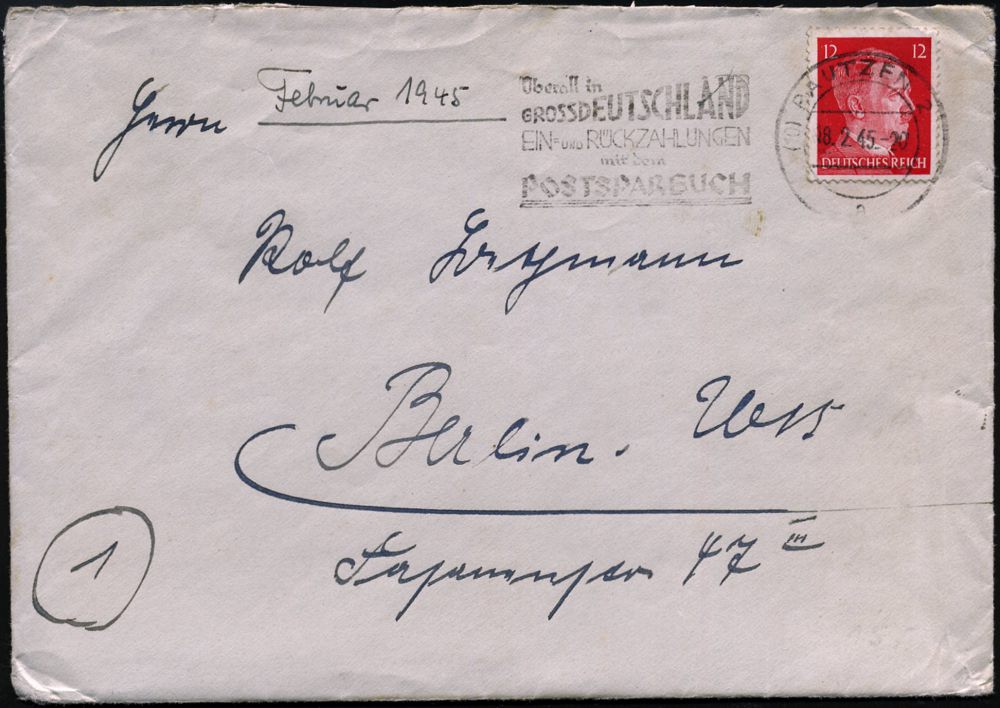 Februar 1945
Herrn
Überall in
GROSSDEUTSCHLAND
EIN- UND RÜCKZAHLUNGEN
mit dem
POSTSPARBUCH
12 12
DEUTSCHES REICH
(10) BAUTZEN 2
8.2.45.-20
a
Rolf
Berlin. W15
Fasanenstr. 47 III
1